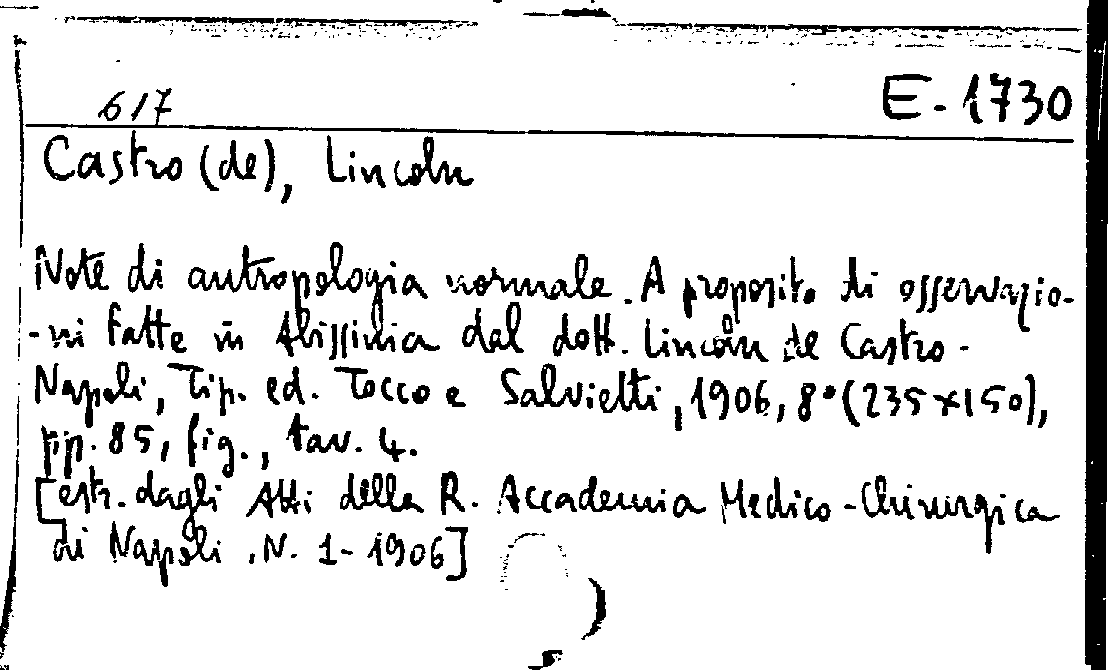 617
E-1730
Castro (de), Lincoln
Note di antropologia normale. A proposito di osservazio-
-ni fatte in Abissinia dal dott. Lincoln de Castro -
Napoli, Tip. ed. Tocco e Salvietti, 1906, 8° (235×150),
pp. 85, fig., tav. 4.
[estr. dagli Atti della R. Accademia Medico-Chirurgica
di Napoli, N. 1-1906]